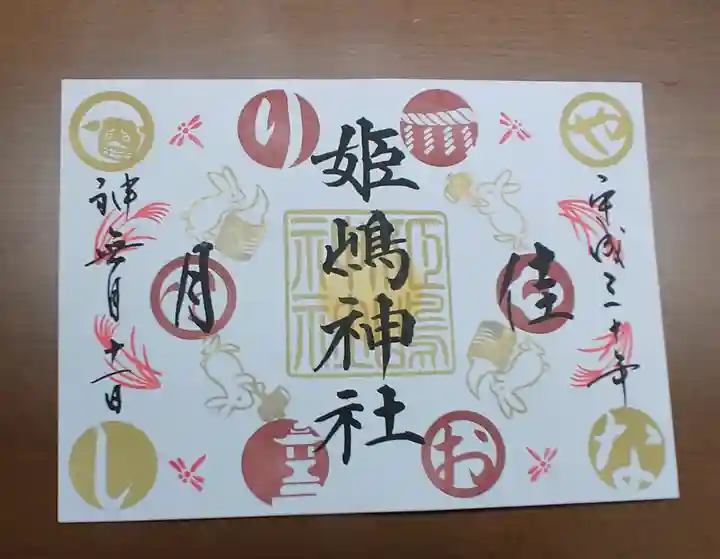 平成三十年
佳
姫嶋神社
月
神無月十一日
や
り
な
お
し
姫嶋神社